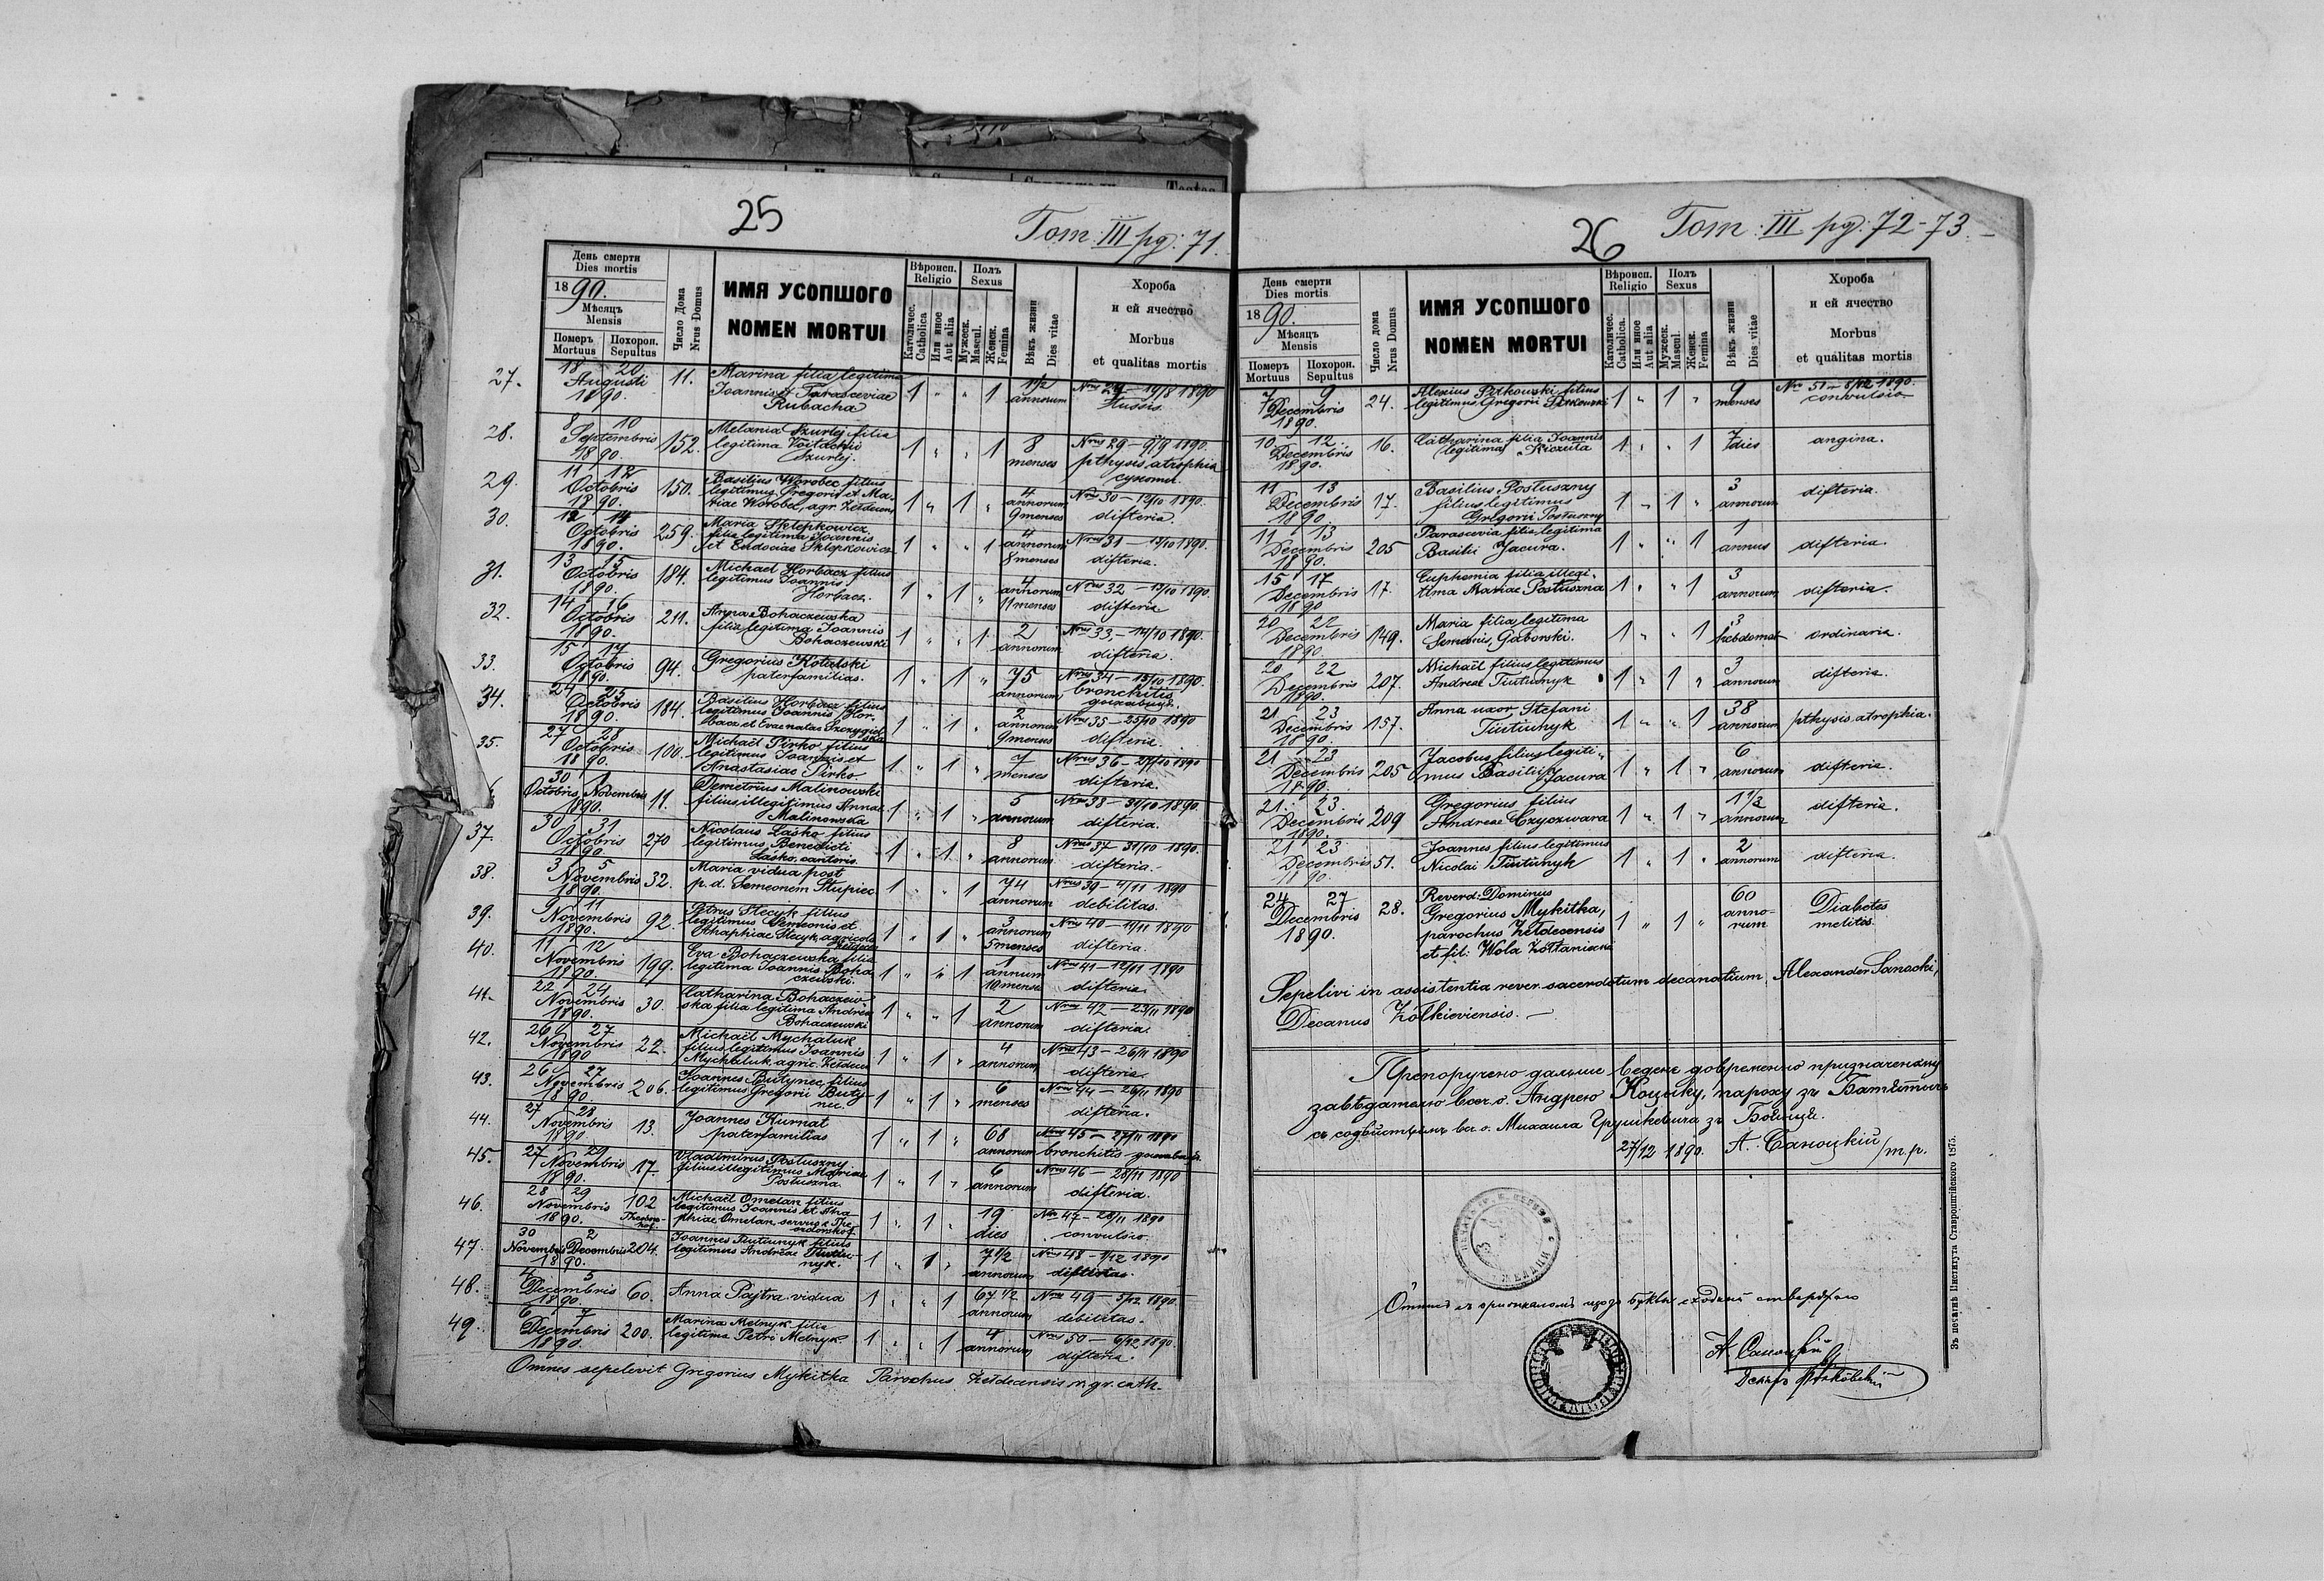 25
Tom. III pg. 71.
День смерти
Dies mortis
1890.
Мѣсяцъ
Mensis
Померъ
Mortuus
Похорон.
Sepultus
Число Дома
Nrus Domus
ИМЯ УСОПШОГО
NOMEN MORTUI
Вѣроисп.
Religio
Католичес.
Catholica
Или иное
Aut alia
Полъ
Sexus
Мужеск.
Mascul.
Женск.
Femina
Вѣкъ жизни
Dies vitae
Хороба
и ей ячество
Morbus
et qualitas mortis
27. 18 20 Augusti 1890. 11. Marina filia legitima
Joannis et Parasceviae
Rubacha 1 " " 1 1 1/2 annorum Nrus 28 – 19/8 1890
tussis.
28. 8 10 Septembris 1890. 152. Melania Szurlej filia
legitima Voitachii
Szurlej. 1 " " 1 8 menses Nrus 29 – 9/9 1890.
pthysis atrophia
сухоты.
29. 11 12 Octobris 1890. 150. Basilius Worobec filius
legitimus Gregorii et Ma-
riae Worobec, agr. Żełdecens. 1 " 1 " 4 annorum 9 menses Nrus 30 – 12/10 1890.
difteria.
30. 12 14 Octobris 1890. 259. Maria Sklepkowicz
filia legitima Joannis
et Eudociae Sklepkowicz 1 " " 1 4 annorum 8 menses Nrus 31 – 13/10 1890.
difteria.
31. 13 15 Octobris 1890. 184. Michael Horbacz filius
legitimus Joannis
Horbacz. 1 " 1 " 4 annorum 11 menses Nrus 32 – 13/10 1890.
difteria
32. 14 16 Octobris 1890. 211. Anna Bohaczewska
filia legitima Joannis
Bohaczewski 1 " " 1 2 annorum Nrus 33 – 14/10 1890.
difteria.
33. 15 17 Octobris 1890. 94. Gregorius Kotalski
paterfamilias. 1 " 1 " 75 annorum Nrus 34 – 15/10 1890.
bronchitis
34. 24 25 Octobris 1890. 184. Basilius Horbacz filius
legitimus Joannis Hor-
bacz et Evae natae 1 " 1 " 2 annorum 9 menses Nrus 35 – 25/10 1890
difteria.
35. 27 28 Octobris 1890. 100. Michaël Pirko filius
legitimus Joannis et
Anastasiae Pirko. 1 " 1 " 7 menses Nrus 36 – 27/10 1890
difteria.
30 1 Octobris Novembris 1890. 11. Demetrius Malinowski
filius illegitimus Annae
Malinowska 1 " 1 " 5 annorum Nrus 38 – 31/10 1890.
difteria.
37. 30 31 Octobris 1890. 270 Nicolaus Łaśko filius
legitimus Benedicti
Łaśko, cantoris. 1 " 1 " 8 annorum Nrus 37 – 31/10 1890.
difteria.
38. 3 5 Novembris 1890. 32. Maria vidua post
p. d. Semeonem Słupiec 1 " " 1 74 annorum Nrus 39 – 4/11 1890
debilitas.
39. 9 11 Novembris 1890. 92. Petrus Stecyk filius
legitimus Semeonis et
Ahaphiae Stecyk, agricola 1 " 1 " 3 annorum 5 menses Nrus 40 – 11/11 1890
difteria.
40. 11 12 Novembris 1890. 199. Eva Bohaczewska filia
legitima Joannis Boha-
czewski. 1 " " 1 1 annum 10 menses Nrus 41 – 12/11 1890
difteria.
41. 22 24 Novembris 1890. 30. Catharina Bohaczew-
ska filia legitima Andreae
Bohaczewski 1 " " 1 2 annorum Nrus 42 – 23/11 1890
difteria.
42. 26 27 Novembris 1890 22. Michaël Mychaluk
filius legitimus Joannis
Mychaluk agric. Żełdecen 1 " 1 " 4 annorum Nrus 43 – 26/11 1890
difteria
43. 26 27 Novembris 1890. 206. Joannes Butynec filius
legitimus Gregorii Buty-
nec. 1 " 1 " 6 menses Nrus 44 – 26/11 1890
difteria.
44. 27 28 Novembris 1890. 13. Joannes Kurnat
paterfamilias 1 " 1 " 68 annorum Nrus 45 – 27/11 1890
bronchitis
45. 27 29 Novembris 1890. 17. Vladimirus Postuszny
filius illegitimus Mariae
Postuszna. 1 " 1 " 6 annorum Nrus 46 – 28/11 1890
difteria.
46. 28 29 Novembris 1890. 102 Theodors-
hof. Michaël Omelan filius
legitimus Joannis et Aha-
phiae Omelan, servus e The-
odorshof. 1 " 1 " 19 dies Nrus 47 – 28/11 1890
convulsio.
47. 30 2 Novembris Decembris 1890. 204. Joannes Tiutiunyk filius
legitimus Andreae Tiutiu-
nyk. 1 " 1 " 7 1/2 annorum Nrus 48 – 1/12 1890
48. 4 5 Decembris 1890. 60. Anna Pajtra vidua 1 " " 1 67 1/2 annorum Nrus 49 – 5/12 1890.
debilitas.
49. 6 7 Decembris 1890. 200. Marina Melnyk filia
legitima Petri Melnyk. 1 " " 1 4 annorum Nrus 50 – 6/12 1890.
difteria.
Omnes sepelevit Gregorius Mykitka Parochus Żełdecensis r. gr. cath.
26
Tom. III pg. 72-73.
День смерти
Dies mortis
1890.
Мѣсяцъ
Mensis
Померъ
Mortuus
Похорон.
Sepultus
Число дома
Nrus Domus
ИМЯ УСОПШОГО
NOMEN MORTUI
Вѣроисп.
Religio
Католичес.
Catholica.
Или иное
Aut alia
Полъ
Sexus
Мужеск.
Mascul.
Женск.
Femina
Вѣкъ жизни
Dies vitae
Хороба
и ей ячество
Morbus
et qualitas mortis
7 9 Decembris 1890. 24. Alexius Pitkowski filius
legitimus Gregorii Pitkowski 1 " 1 " 9 menses Nrs 51 – 8/12 1890.
convulsio
10 12 Decembris 1890. 16. Catharina filia Joannis
legitima Kiczuta 1 " " 1 7 dies angina.
11 13 Decembris 1890. 17. Basilius Postuszny
filius legitimus
Gregorii Postuszny 1 " 1 " 3 annorum difteria.
11 13 Decembris 1890. 205 Parascevia filia legitima
Basilii Jacura. 1 " " 1 1 annus difteria.
15 17 Decembris 1890 17. Euphemia filia illegi-
tima Mariae Postuszna 1 " " 1 3 annorum difteria.
20 22 Decembris 1890. 149. Maria filia legitima
Semeonis Gaborski. 1 " " 1 3 hebdomad. ordinaria.
20 22 Decembris 1890. 207. Michaël filius legitimus
Andreae Tiutiunyk 1 " 1 " 3 annorum difteria.
21 23 Decembris 1890 157. Anna uxor Stefani
Tiutiunyk 1 " " 1 38 annorum pthysis atrophia.
21 23 Decembris 1890. 205 Jacobus filius legiti-
mus Basilii Jacura 1 " 1 " 6 annorum difteria.
21. 23. Decembris 1890. 209 Gregorius filius
Andreae Czyczwara 1 " 1 " 1 1/2 annorum difteria.
21 23 Decembris 1890 51. Joannes filius legitimus
Nicolai Tiutiunyk 1 " 1 " 2 annorum difteria.
24 27 Decembris 1890. 28. Reverd: Dominus
Gregorius Mykitka,
parochus Żełdecensis
et fil: Wola Żołtaniecka 1 " 1 " 60 anno-
rum Diabetes
melitis.
Sepelivi in assistentia rever. sacerdotum decanatium, Alexander Sanocki,
Decanus Żołkieviensis. –
Препоручено дальше веденє довременно призначеному
завѣдателю всеч. о. Андрею Коцыку, пароху зъ Батятичъ
съ содѣйствіемъ вч. о. Михаила Грушкевича зъ
27/12 1890. А. Саноцкій /m.p.
А. Саноцкій
Зъ печатнѣ Института Ставропігійского 1875.